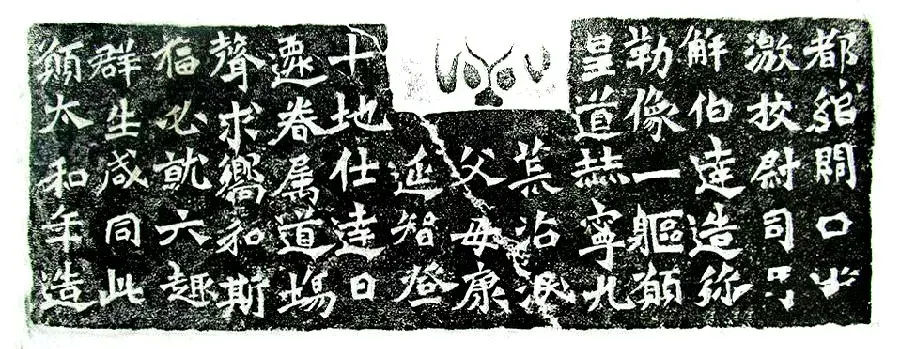 都綰關口
激校尉司
解伯達造弥
勒像一軀願
皇道赫寧九
荒沿泯
父母康
延智登
十地仕達日
遷眷属道場
聲求嚮和斯
福必就六趣
群生咸同此
願太和年造